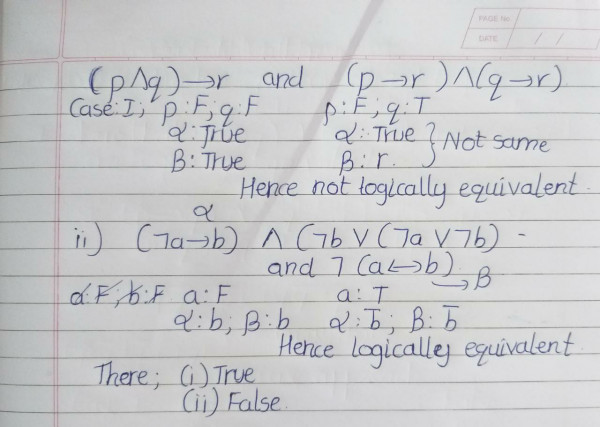 PAGE No.
DATE / /
(p∧q)→r and (p→r)∧(q→r)
Case: I; p:F; q:F p:F; q:T
α: True α: True } Not same
B: True B: r.
Hence not logically equivalent.
α
ii) (¬a→b) ∧ (¬b∨(¬a∨¬b) -
and ¬(a↔b) → B
a:F, b:F a:F a:T
α:b; β:b α:b̅; β:b̅
Hence logically equivalent
There; (i) True
(ii) False.